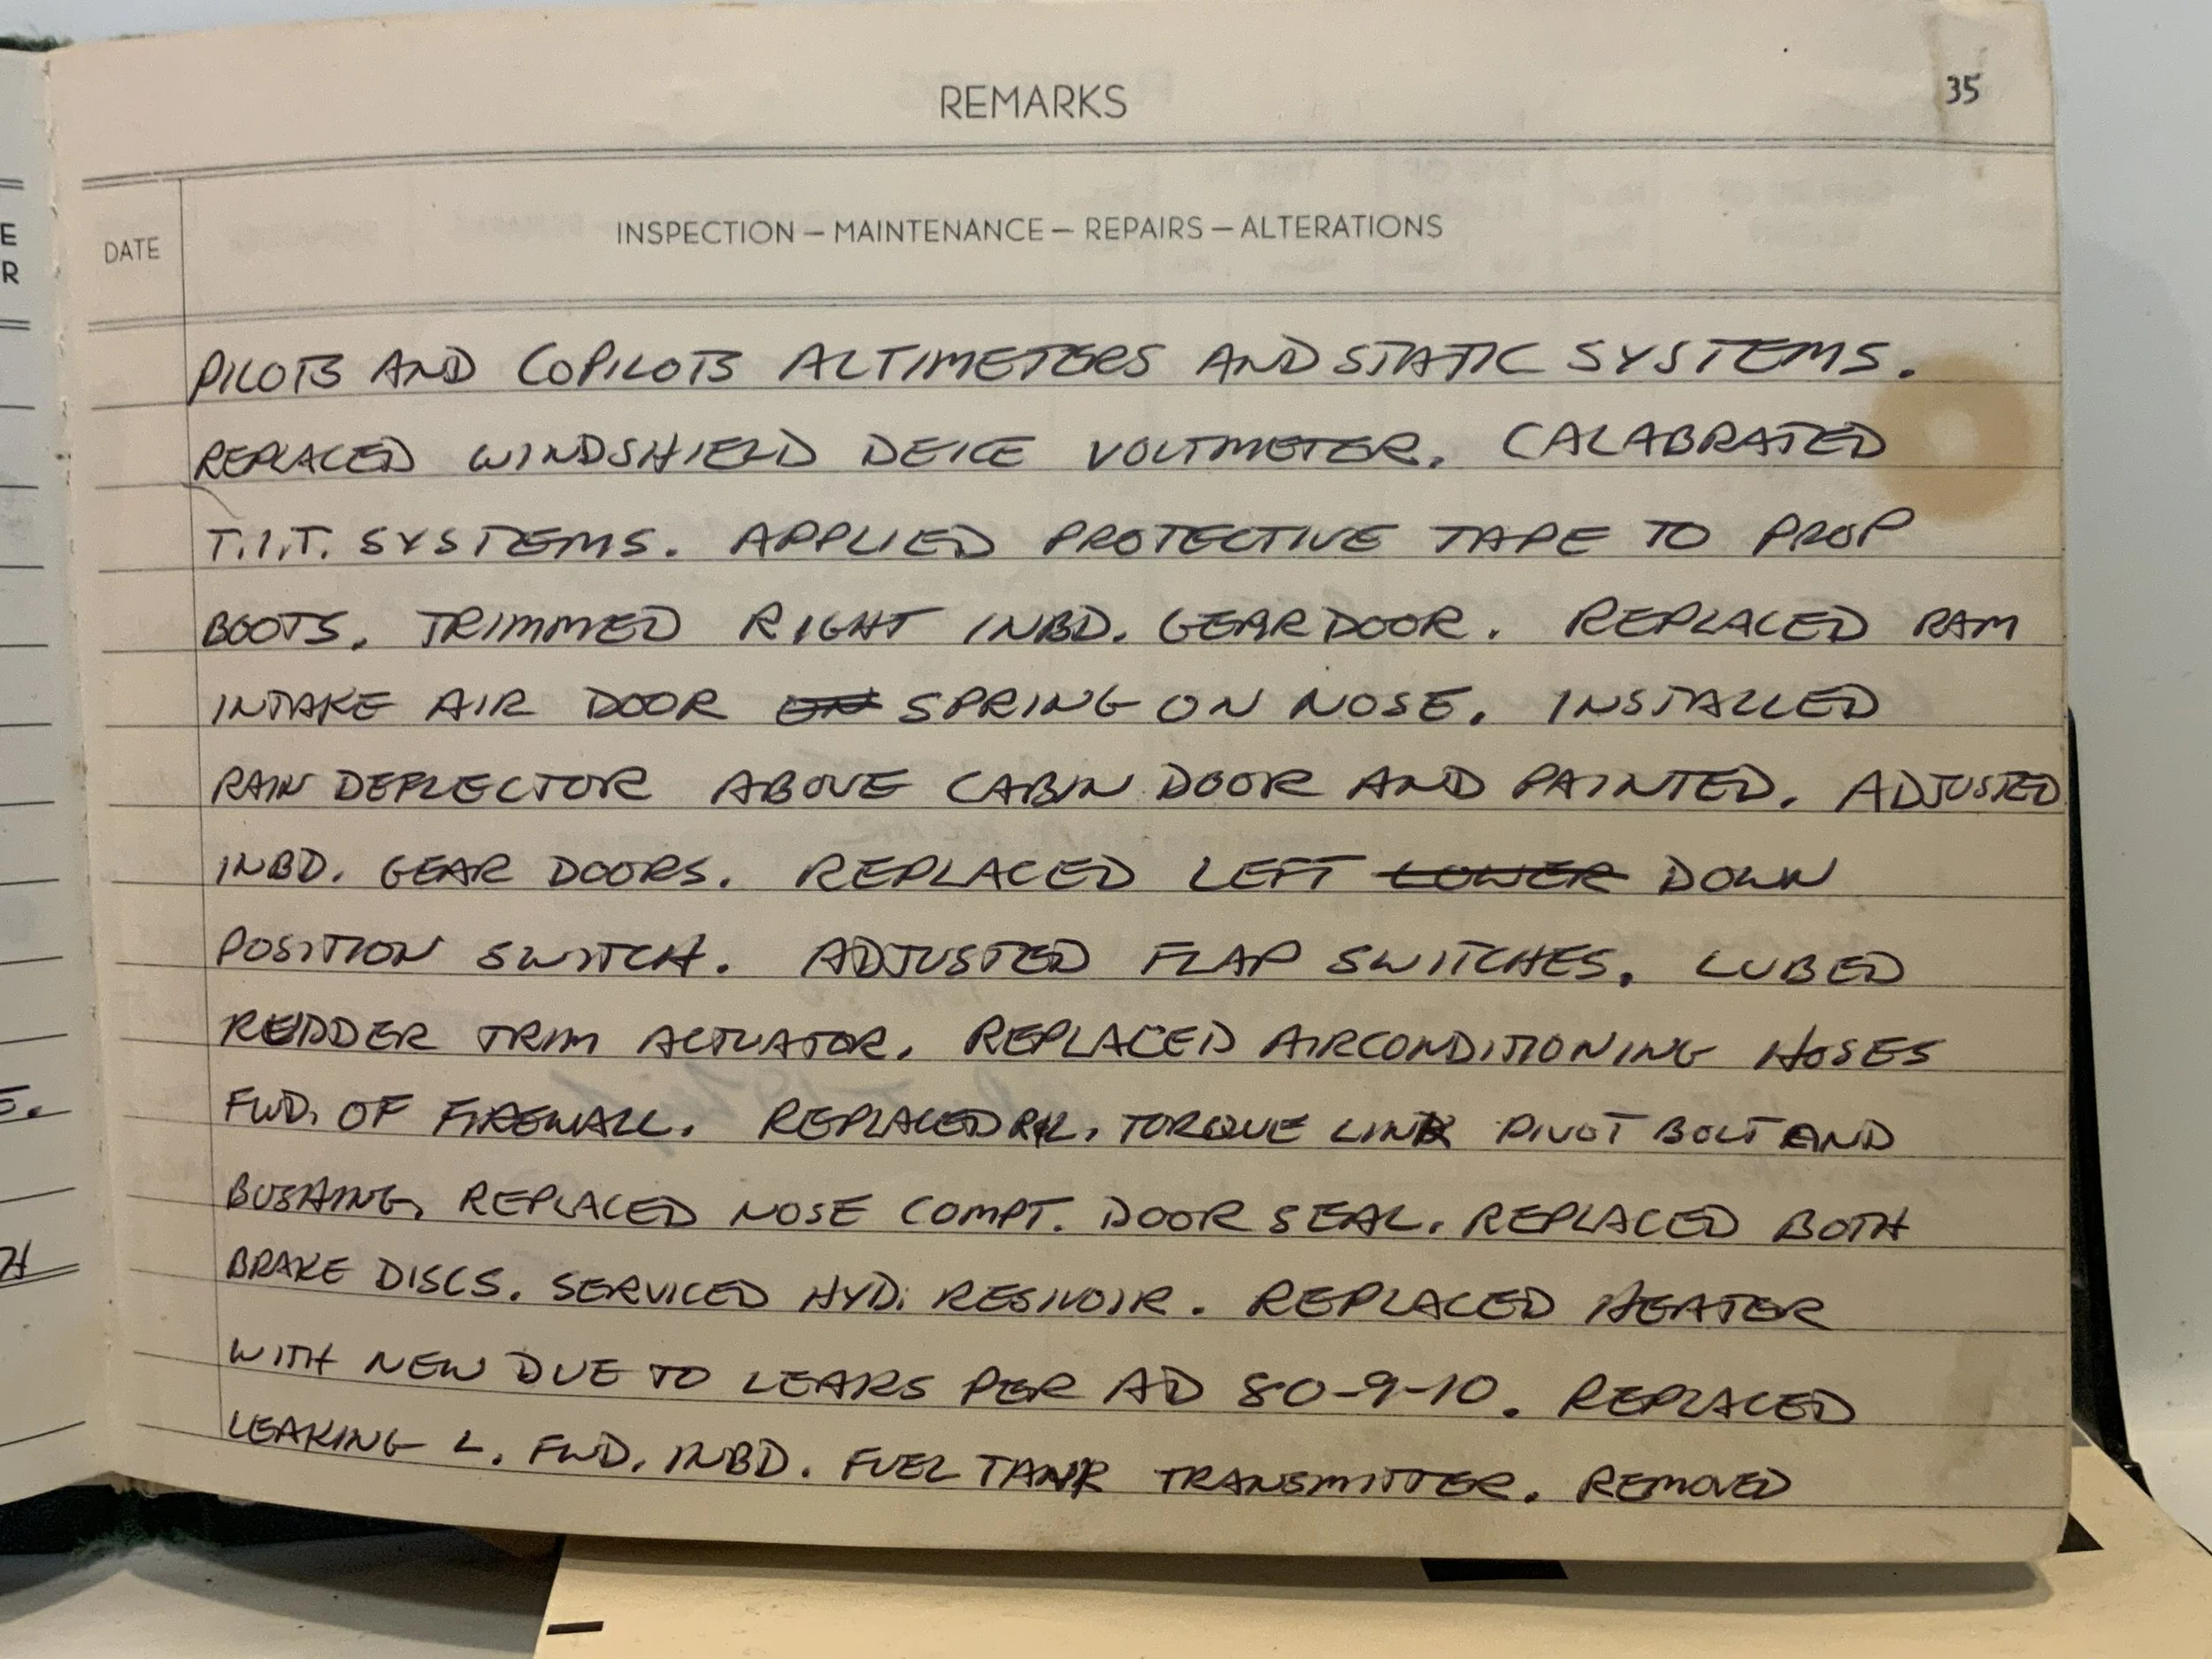 REMARKS
35
DATE
INSPECTION — MAINTENANCE — REPAIRS — ALTERATIONS
PILOTS AND COPILOTS ALTIMETERS AND STATIC SYSTEMS.
REPLACED WINDSHIELD DEICE VOLTMETER. CALABRATED
T.I.T. SYSTEMS. APPLIED PROTECTIVE TAPE TO PROP
BOOTS. TRIMMED RIGHT INBD. GEAR DOOR. REPLACED RAM
INTAKE AIR DOOR ON SPRING ON NOSE. INSTALLED
RAIN DEFLECTOR ABOVE CABIN DOOR AND PAINTED. ADJUSTED
INBD. GEAR DOORS. REPLACED LEFT LOWER DOWN
POSITION SWITCH. ADJUSTED FLAP SWITCHES. LUBED
RUDDER TRIM ACTUATOR. REPLACED AIRCONDITIONING HOSES
FWD. OF FIREWALL. REPLACED TORQUE LINK PIVOT BOLT AND
BUSHING. REPLACED NOSE COMPT. DOOR SEAL. REPLACED BOTH
BRAKE DISCS. SERVICED HYD. RESIVOIR. REPLACED HEATER
WITH NEW DUE TO LEAKS PER AD 80-9-10. REPLACED
LEAKING L. FWD. INBD. FUEL TANK TRANSMITTER. REMOVED